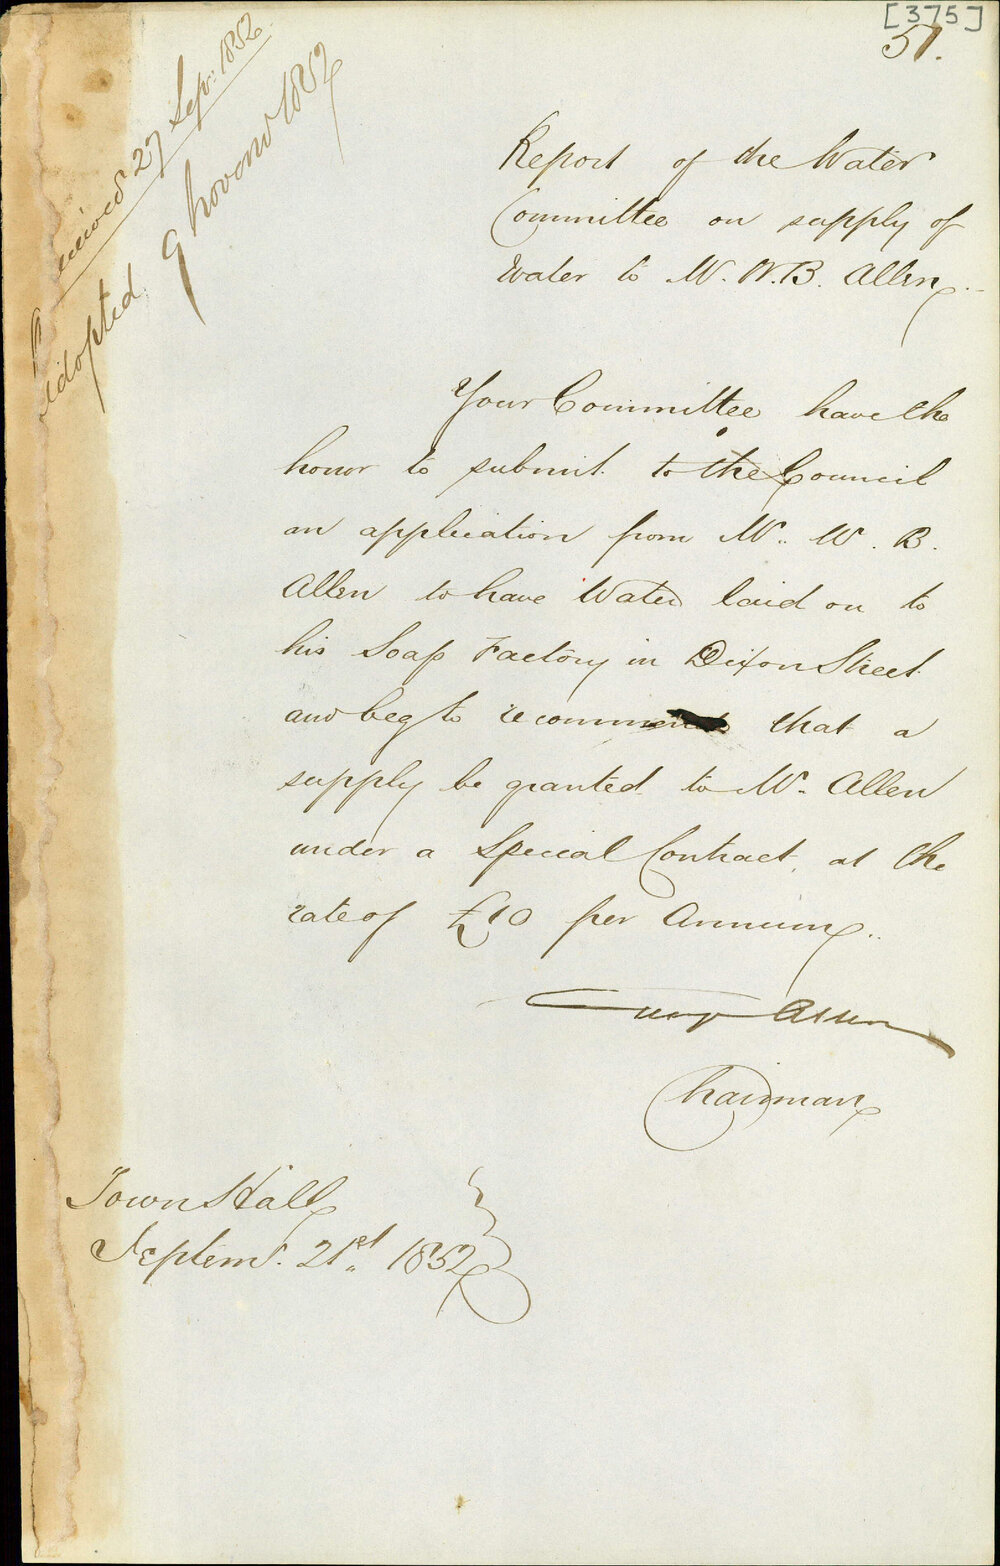 [375]
51.
Received 27 Sepr. 1852
Adopted 9 Novemr 1852
Report of the Water
Committee on supply of
Water to Mr. W. B. Allen.
Your Committee have the
honor to submit to the Council
an application from Mr. W. B.
Allen to have Water laid on to
his Soap Factory in Dixon Street
and beg to recommend that a
supply be granted to Mr. Allen
under a Special Contract, at the
rate of £10 per Annum.
Chairman
Town Hall
Septemr. 21st 1852